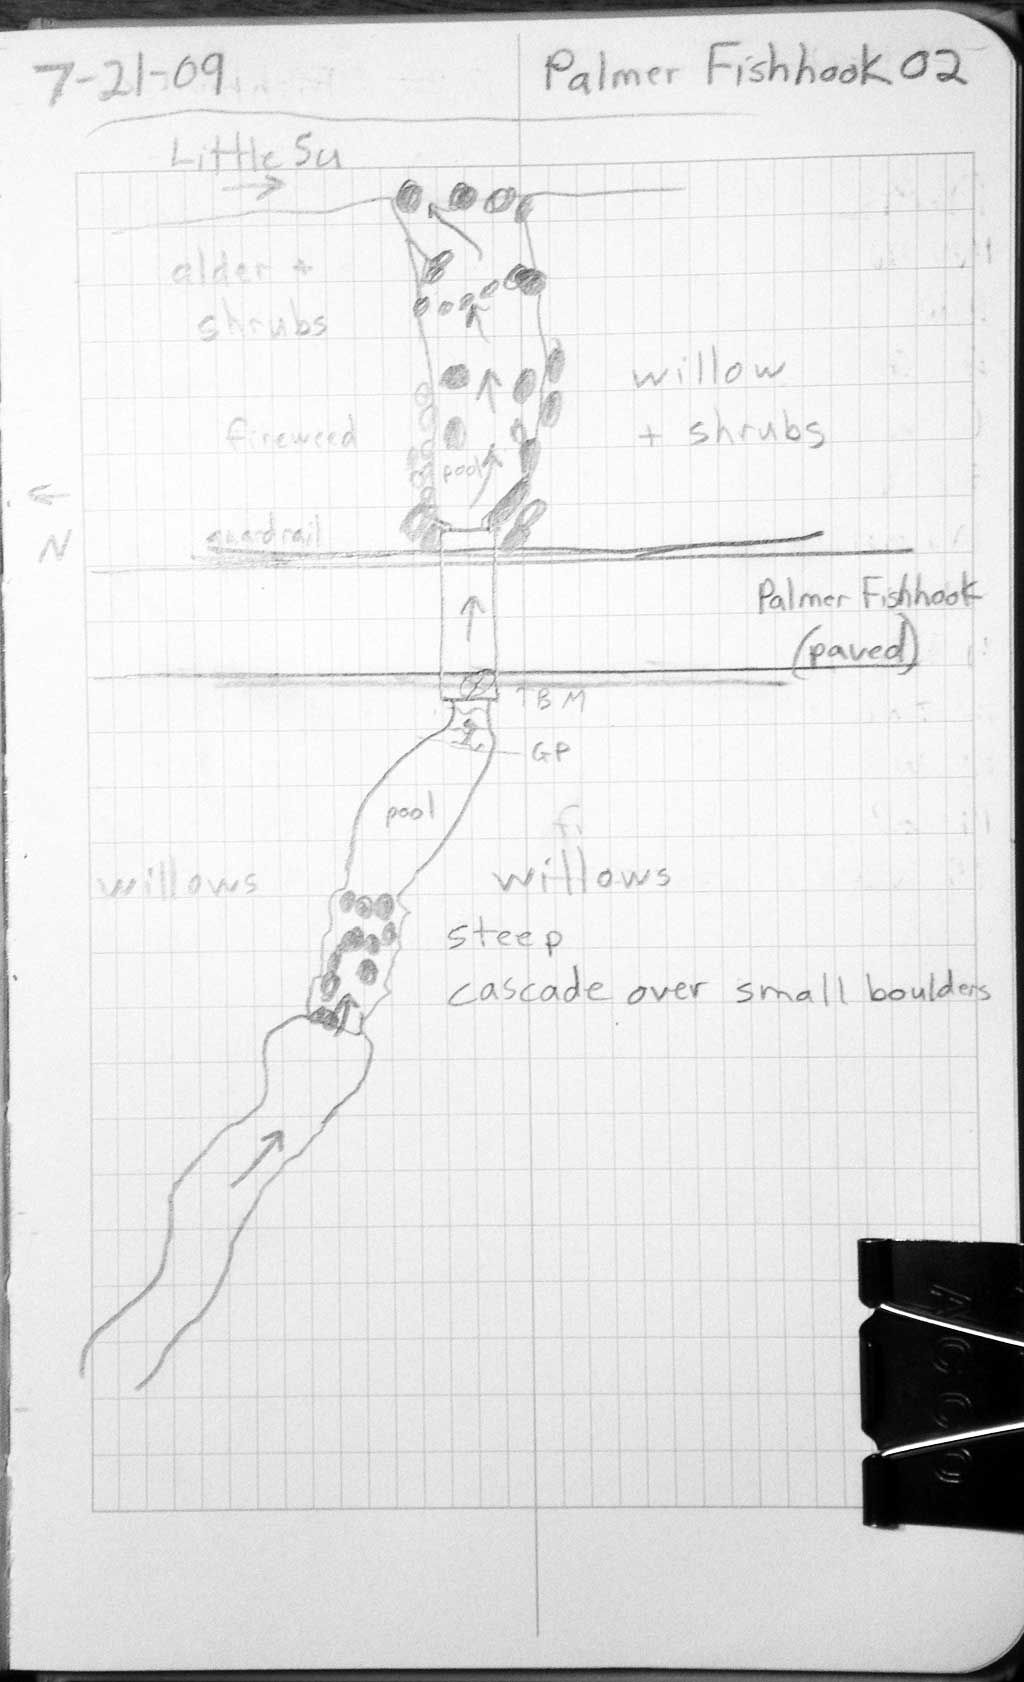 7-21-09
Palmer Fishhook 02
Little Su
alder +
shrubs
willow
+ shrubs
fireweed
pool
N
guardrail
Palmer Fishhook
(paved)
TBM
GP
pool
willows
willows
steep
cascade over small boulders
ACCO